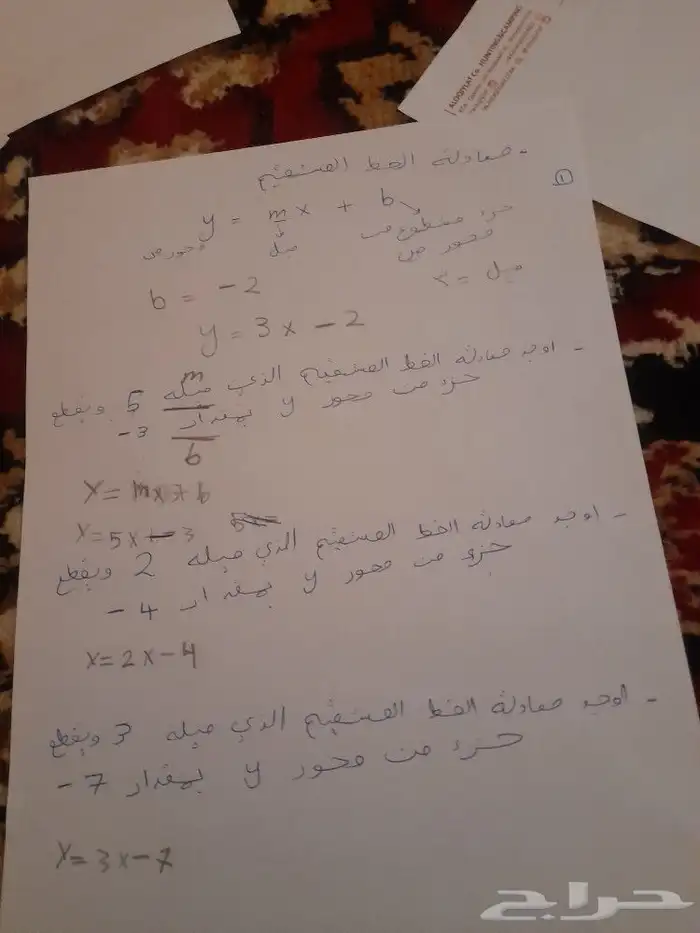 - معادلة الخط المستقيم
①
y = mx + b
جزء مقطوع من
محور ص
ميل
محور ص
ميل = ٣
b = -2
y = 3x - 2
- اوجد معادلة الخط المستقيم الذي ميله 5 ويقطع
m
جزء من محور y بمقدار 3-
b
y = mx + b
y = 5x - 3
- اوجد معادلة الخط المستقيم الذي ميله 2 ويقطع
جزء من محور y بمقدار 4-
y = 2x - 4
- اوجد معادلة الخط المستقيم الذي ميله 3 ويقطع
جزء من محور y بمقدار 7-
y = 3x - 7
حراج